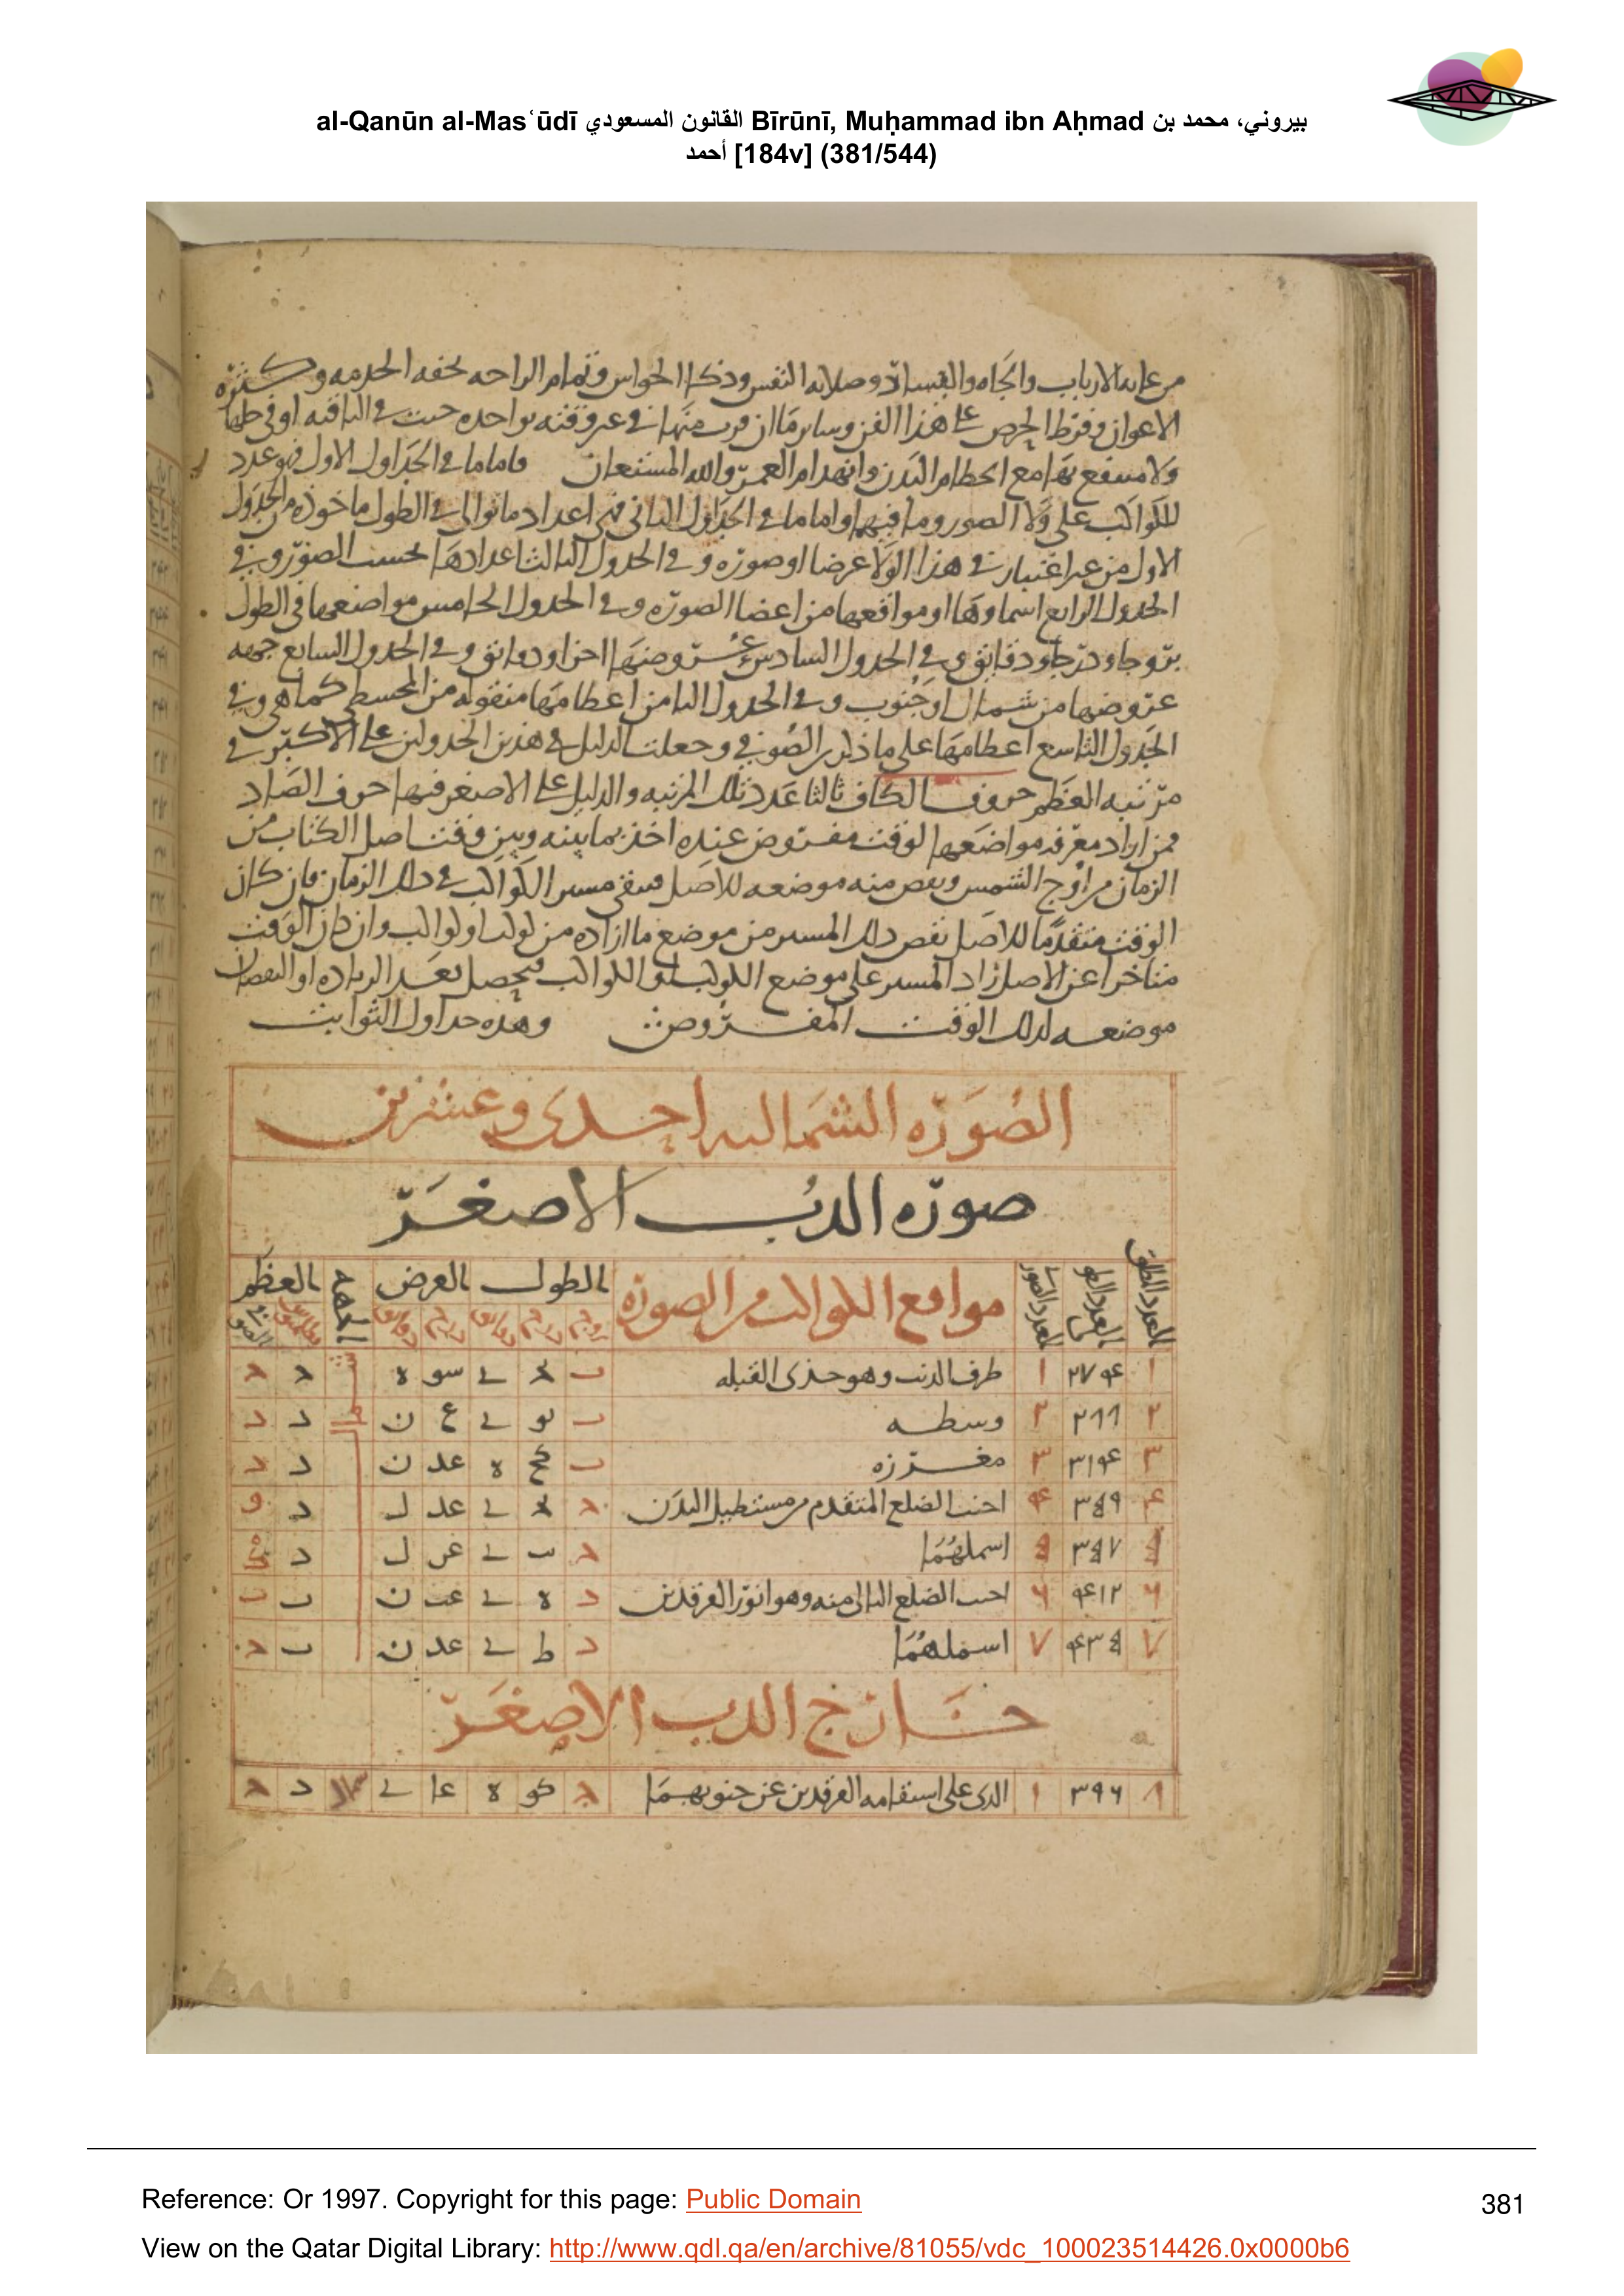 al-Qanūn al-Masʿūdī القانون المسعودي Bīrūnī, Muḥammad ibn Aḥmad بيروني، محمد بن
أحمد [184v] (381/544)
من عامه الارباب والجاه والقيسان وصلابه النفس وذكا الحواس وتمام الراحه بخفه الحرمه وكثره
الاعوان وفرط الحرص على هذا الفن وساير ما ان قرب منها في عروقته بواحده حيث في الباقيه او في طلها
ولا منتفع بها مع انحطام البدن وانهدام العمر والله المستعان فاما ما في الجداول الاول فهو عدد
للكواكب على ولا الصور وما فيها واما ما في الجداول الثاني فهي اعداد ما توالى في الطول ماخوذه من الجدول
الاول من غير اعتبار في هذا الولا عرضا او صوره وفي الجدول الثالث اعدادها بحسب الصور وفي
الجدول الرابع اسماوها او مواقعها من اعضا الصوره وفي الجدول الخامس مواضعها في الطول
بروجا ودرجا ودقايق وفي الجدول السادس عروضها اجزا ودقايق وفي الجدول السابع جهه
عروضها من شمال او جنوب وفي الجدول الثامن اعظامها منقوله من المجسطي كما هي وفي
الجدول التاسع اعظامها على ما ذكر الصوفي وجعلت الدليل في هذين الجدولين على الاكبر في
مرتبه العظم حروف الكاف ثالثا عدد تلك المرتبه والدليل على الاصغر فيها حرف الصاد
فمن اراد معرفه مواضعها لوقت مفروض عنده اخذ بما بينه وبين وقت اصل الكتاب من
الزمان من اوج الشمس ونقص منه موضعه للاصل فيبقى مسير الكواكب في ذلك الزمان فان كان
الوقت متقدما للاصل نقص ذلك المسير من موضع ما اراده من كوكب او كواكب وان كان الوقت
متاخرا عن الاصل زاد المسير على موضع الكوكب او الكواكب فيحصل بعد الزياده او النقصان
موضعه لذلك الوقت المفروض وهذه جداول الثوابت
الصوره الشماليه احدى وعشرين
صوره الدب الاصغر
العدد المطلق العدد الطولي العدد الصور مواقع الكواكب من الصوره الطول العرض الجهه العظم
بروج درج دقايق درج دقايق
١ ٢٧۴ ١ طرف الذنب وهو جذى القبله ب ے سو ه
٢ ٢٦٦ ٢ وسطه ب لو ے ع ن د د
٣ ٣١۴ ٣ مغرزه ب كح ه عد ن د د
۴ ٣٥٩ ۴ احنب الضلع المتقدم من مستطيل البدن ے عد ل د و
٥ ٣٥٧ ٥ اسملهما ب ے عن ل د
٦ ۴١٢ ٦ احنب الضلع التالى منه وهو انور الفرقدين د ه ے عب ن ب ب
٧ ۴٣٥ ٧ اسملهما د ط ے عد ن ب
خارج الدب الاصغر
٨ ٣٩٦ ١ الذى على استقامه الفرقدين عن جنوبهما كو ه عا ے د
Reference: Or 1997. Copyright for this page: Public Domain
381
View on the Qatar Digital Library: http://www.qdl.qa/en/archive/81055/vdc_100023514426.0x0000b6